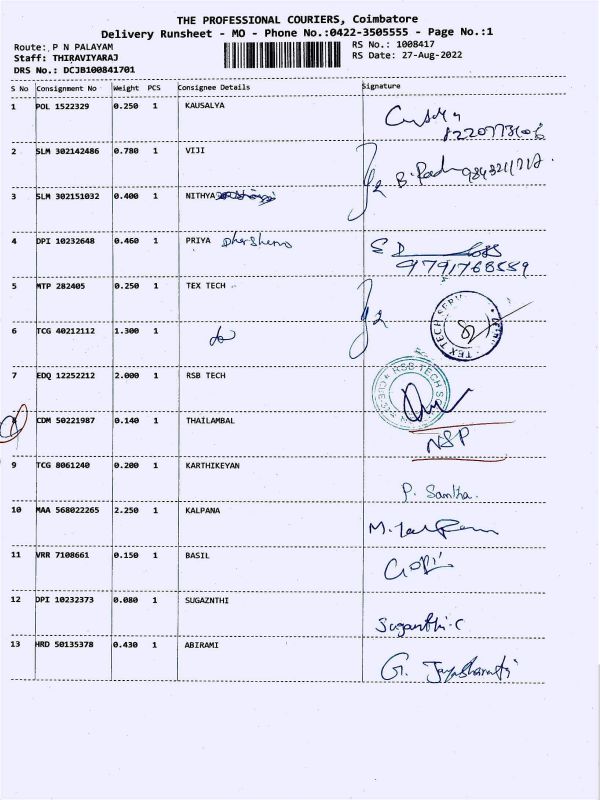 THE PROFESSIONAL COURIERS, Coimbatore
Delivery Runsheet - MO - Phone No.:0422-3505555 - Page No.:1
Route: P N PALAYAM RS No.: 1008417
Staff: THIRAVIYARAJ RS Date: 27-Aug-2022
DRS No.: DCJB100841701
S No Consignment No Weight PCS Consignee Details Signature
1 POL 1522329 0.250 1 KAUSALYA
2 SLM 302142486 0.780 1 VIJI
3 SLM 302151032 0.400 1 NITHYA
4 DPI 10232648 0.460 1 PRIYA
9791768559
5 MTP 282405 0.250 1 TEX TECH
TEX TECH
6 TCG 40212112 1.300 1 do
7 EDQ 12252212 2.000 1 RSB TECH
RSB TECH
8 CDM 50221987 0.140 1 THAILAMBAL NSP
9 TCG 8061240 0.200 1 KARTHIKEYAN
P. Santha.
10 MAA 568022265 2.250 1 KALPANA
11 VRR 7108661 0.150 1 BASIL
GOPI
12 DPI 10232373 0.080 1 SUGAZNTHI
Suganthi.C
13 HRD 50135378 0.430 1 ABIRAMI
G. Jayabharathi